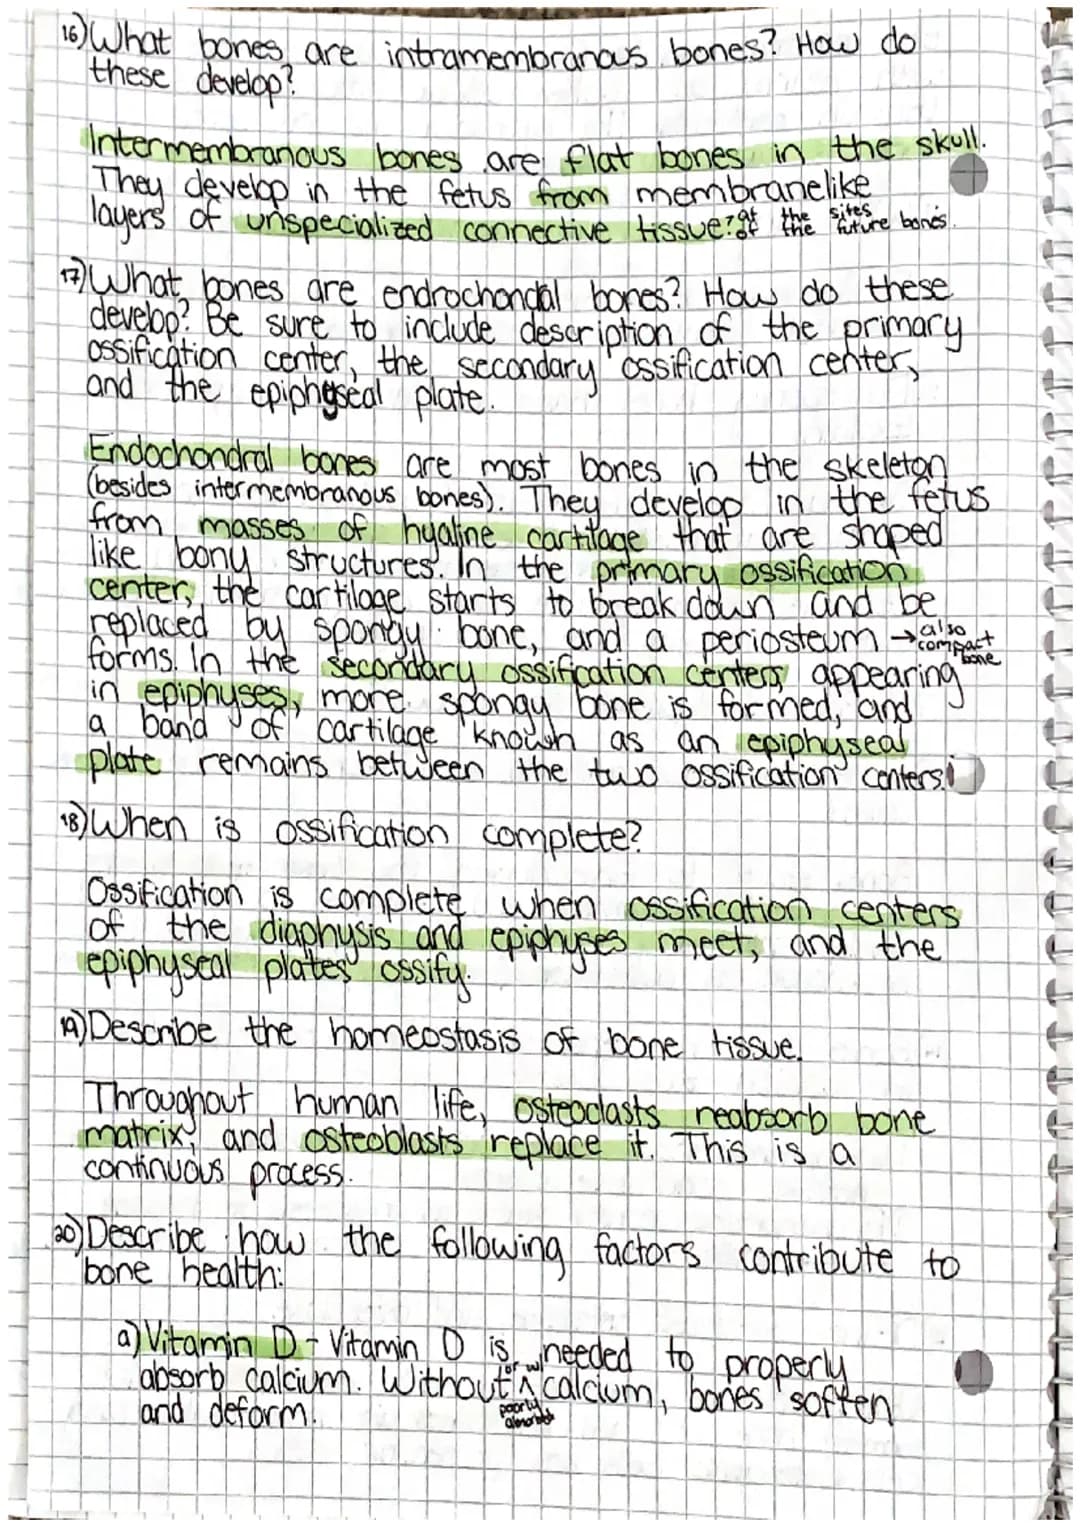 16) What bones are intramembranous bones? How do
these develop?
Intermembranous bones are flat bones in the skull.
They develop in the fetus from membranelike
layers of unspecialized connective tissue at the sites of the future bones.
17) What bones are endrochondal bones? How do these
develop? Be sure to include description of the primary
ossification center, the secondary ossification center,
and the epiphyseal plate.
Endochondral bones are most bones in the skeleton
(besides intermembranous bones). They develop in the fetus
from masses of hyaline cartilage that are shaped
like bony structures. In the primary ossification
center, the cartilage starts to break down and be
replaced by spongy bone, and a periosteum → also compact bone
forms. In the secondary ossification centers appearing
in epiphyses, more spongy bone is formed, and
a band of cartilage known as an epiphyseal
plate remains between the two ossification centers.
18) When is ossification complete?
Ossification is complete when ossification centers
of the diaphysis and epiphyses meet, and the
epiphyseal plates ossify.
19) Describe the homeostasis of bone tissue.
Throughout human life, osteoclasts reabsorb bone
matrix, and osteoblasts replace it. This is a
continuous process.
20) Describe how the following factors contribute to
bone health:
a) Vitamin D - Vitamin D is needed to properly
absorb calcium. Without or w/ poorly absorbed calcium, bones soften
and deform.